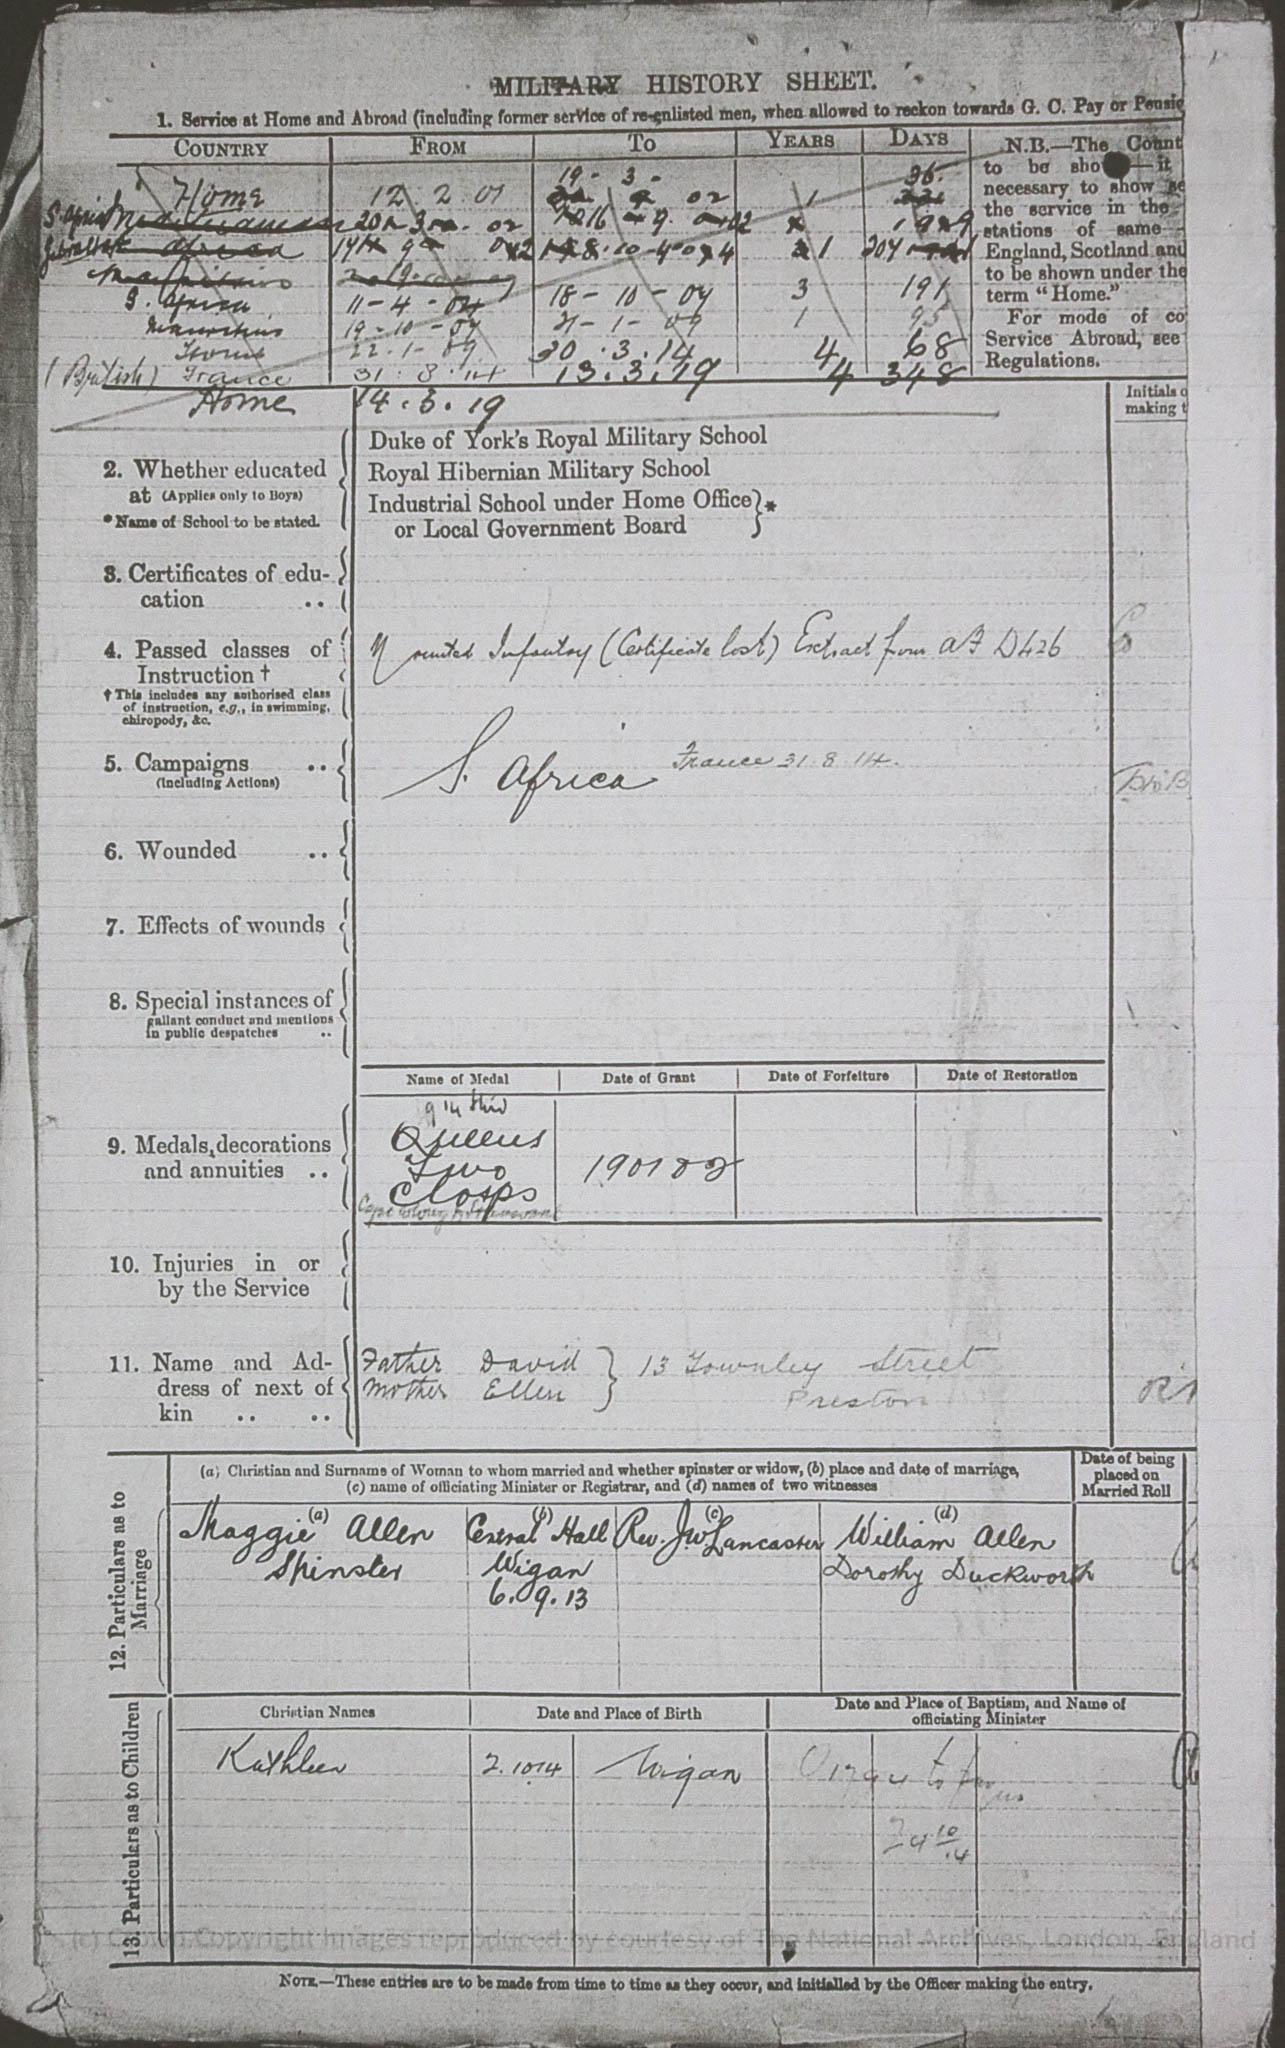 MILITARY HISTORY SHEET.
1. Service at Home and Abroad (including former service of re-enlisted men, when allowed to reckon towards G. C. Pay or Pensio
COUNTRY FROM TO YEARS DAYS
Home 12 2 01 19 - 3 - 02 1 36
S. Africa 20 3 02 16 9 02
Gibraltar 9 02 10 4 04 1 207
S. Africa 11 - 4 - 04 18 - 10 - 07 3 191
Mauritius 19 - 10 - 07 21 - 1 - 09 1 95
Home 22 - 1 - 09 30 . 3 . 14 4 68
(British) France 31 . 8 . 14 13 . 3 . 19 4 348
Home 14 . 3 . 19
N.B.—The Count
to be sho — it
necessary to show se
the service in the
stations of same
England, Scotland and
to be shown under the
term "Home."
For mode of co
Service Abroad, see
Regulations.
Initials o
making t
2. Whether educated
at (Applies only to Boys)
*Name of School to be stated.
Duke of York's Royal Military School
Royal Hibernian Military School
Industrial School under Home Office
or Local Government Board } *
3. Certificates of edu-
cation ..
4. Passed classes of
Instruction †
† This includes any authorised class
of instruction, e.g., in swimming,
chiropody, &c.
Mounted Infantry (Certificate lost) Extract from AF D426
5. Campaigns ..
(including Actions)
S. Africa France 31 . 8 . 14 .
6. Wounded ..
7. Effects of wounds
8. Special instances of
gallant conduct and mentions
in public despatches ..
Name of Medal Date of Grant Date of Forfeiture Date of Restoration
9. Medals, decorations
and annuities ..
Queens
Two
Clasps
1901 02
Cape Colony
10. Injuries in or
by the Service
11. Name and Ad-
dress of next of
kin .. ..
Father David } 13 Townley Street
Mother Ellen Preston
12. Particulars as to
Marriage
(a) Christian and Surname of Woman to whom married and whether spinster or widow, (b) place and date of marriage,
(c) name of officiating Minister or Registrar, and (d) names of two witnesses
Date of being
placed on
Married Roll
(a) (b) (c) (d)
Maggie Allen Central Hall Rev. J.W Lancaster William Allen
Spinster Wigan Dorothy Duckworth
6. 9. 13
13. Particulars as to Children
Christian Names Date and Place of Birth Date and Place of Baptism, and Name of
officiating Minister
Kathleen 2.10.14 Wigan
(c) Crown Copyright Images reproduced by courtesy of The National Archives, London, England
NOTE.—These entries are to be made from time to time as they occur, and initialled by the Officer making the entry.